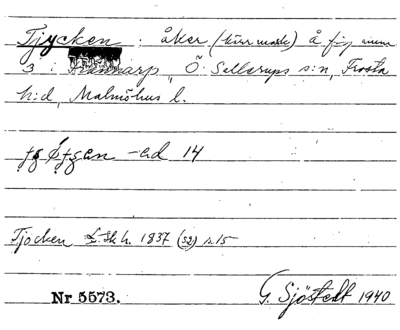 Tjycken : åker (kärrmark) å fig num
3 i Trannarp, Ö. Sallerups s:n, Frosta
h:d, Malmöhus l.
-ed 14
Tjocken L. Sk. h. 1837 (52) s. 15
Nr 5573. G. Sjöstedt 1940